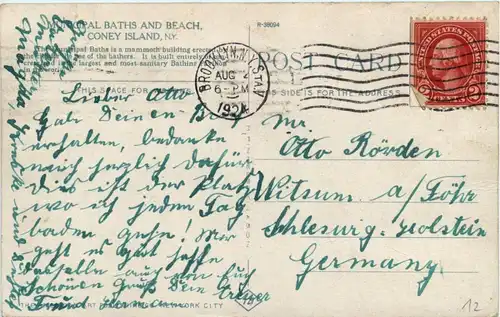 MUNICIPAL BATHS AND BEACH,
CONEY ISLAND, N.Y.
R-38094
Municipal Baths is a mammoth building erected
of the bathers. It is built entirely of
largest and most sanitary Bathing
POST CARD
THIS SPACE FOR
THIS SIDE IS FOR THE ADDRESS
BROOKLYN, N.Y.
AUG 2
6-PM
1924
UNITED STATES POSTAGE
2 CENTS 2
Lieber Otto
Hab Deinen Brief
erhalten, bedanke
mich herzlich dafür
Dies ist der Platz
wo ich jeden Tag
baden gehe! Mir
geht es gut hoffe
auch von Euch
Schönen Gruß Dein
Freund
Mr
Otto Rörden
Witsum a/Föhr
Schleswig-Holstein
Germany
YORK CITY
12